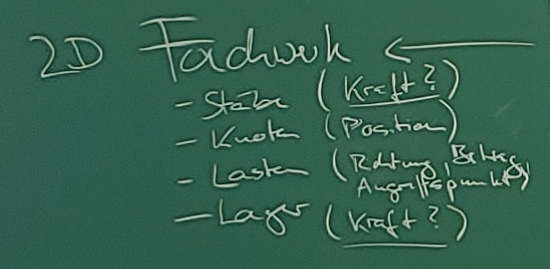 2D Fachwerk
- Stäbe (Kraft?)
- Knoten (Position)
- Lasten (Richtung, Betrag,
Angriffspunkt)
- Lager (Kraft?)